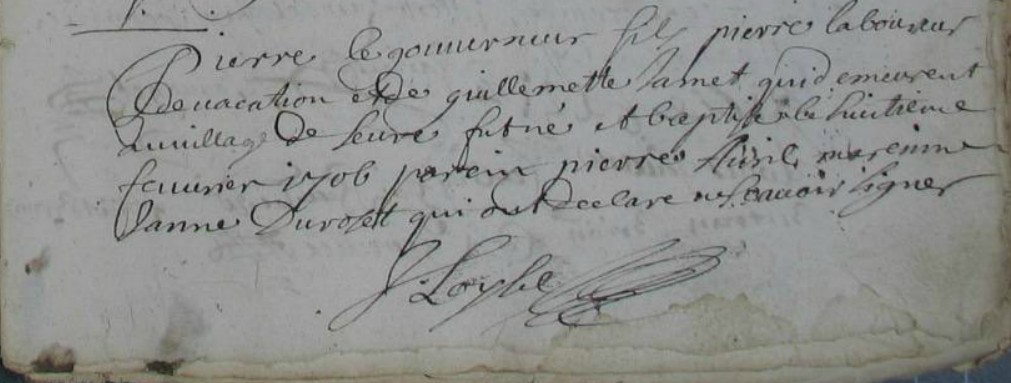 Pierre le gouuerneur fils pierre laboureur
de uacation et de guillemette Jamet qui demeurent
au uillage de seure fut né et baptisé le huitieme
feuurier 1706 parein pierre Auril mareinne
Janne Durosell qui ont declare ne scauoir signer
J Loysel